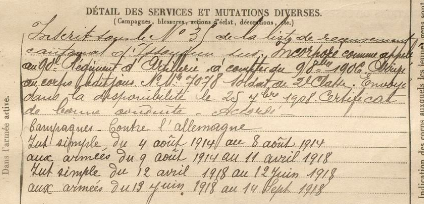 DÉTAIL DES SERVICES ET MUTATIONS DIVERSES.
(Campagnes, blessures, actions d'éclat, décorations, etc.)
Inscrit sous le N° 31 de la liste de recrutement
cantonal d'Issoudun sud. Incorporé comme appelé
au 90e Régiment d'Infanterie à compter du 9 8bre 1906. Arrivé
au corps ledit jour. N° Mle 7078 Soldat de 2e Classe. Envoyé
dans la disponibilité le 25 7bre 1908 Certificat
de bonne conduite "Accordé"
Campagnes - Contre l'Allemagne
Int simple du 4 août 1914 au 8 août 1914
aux armées du 9 août 1914 au 11 avril 1918
Int simple du 12 avril 1918 au 12 juin 1918
aux armées du 13 juin 1918 au 14 Sept 1918
Dans l'armée active.